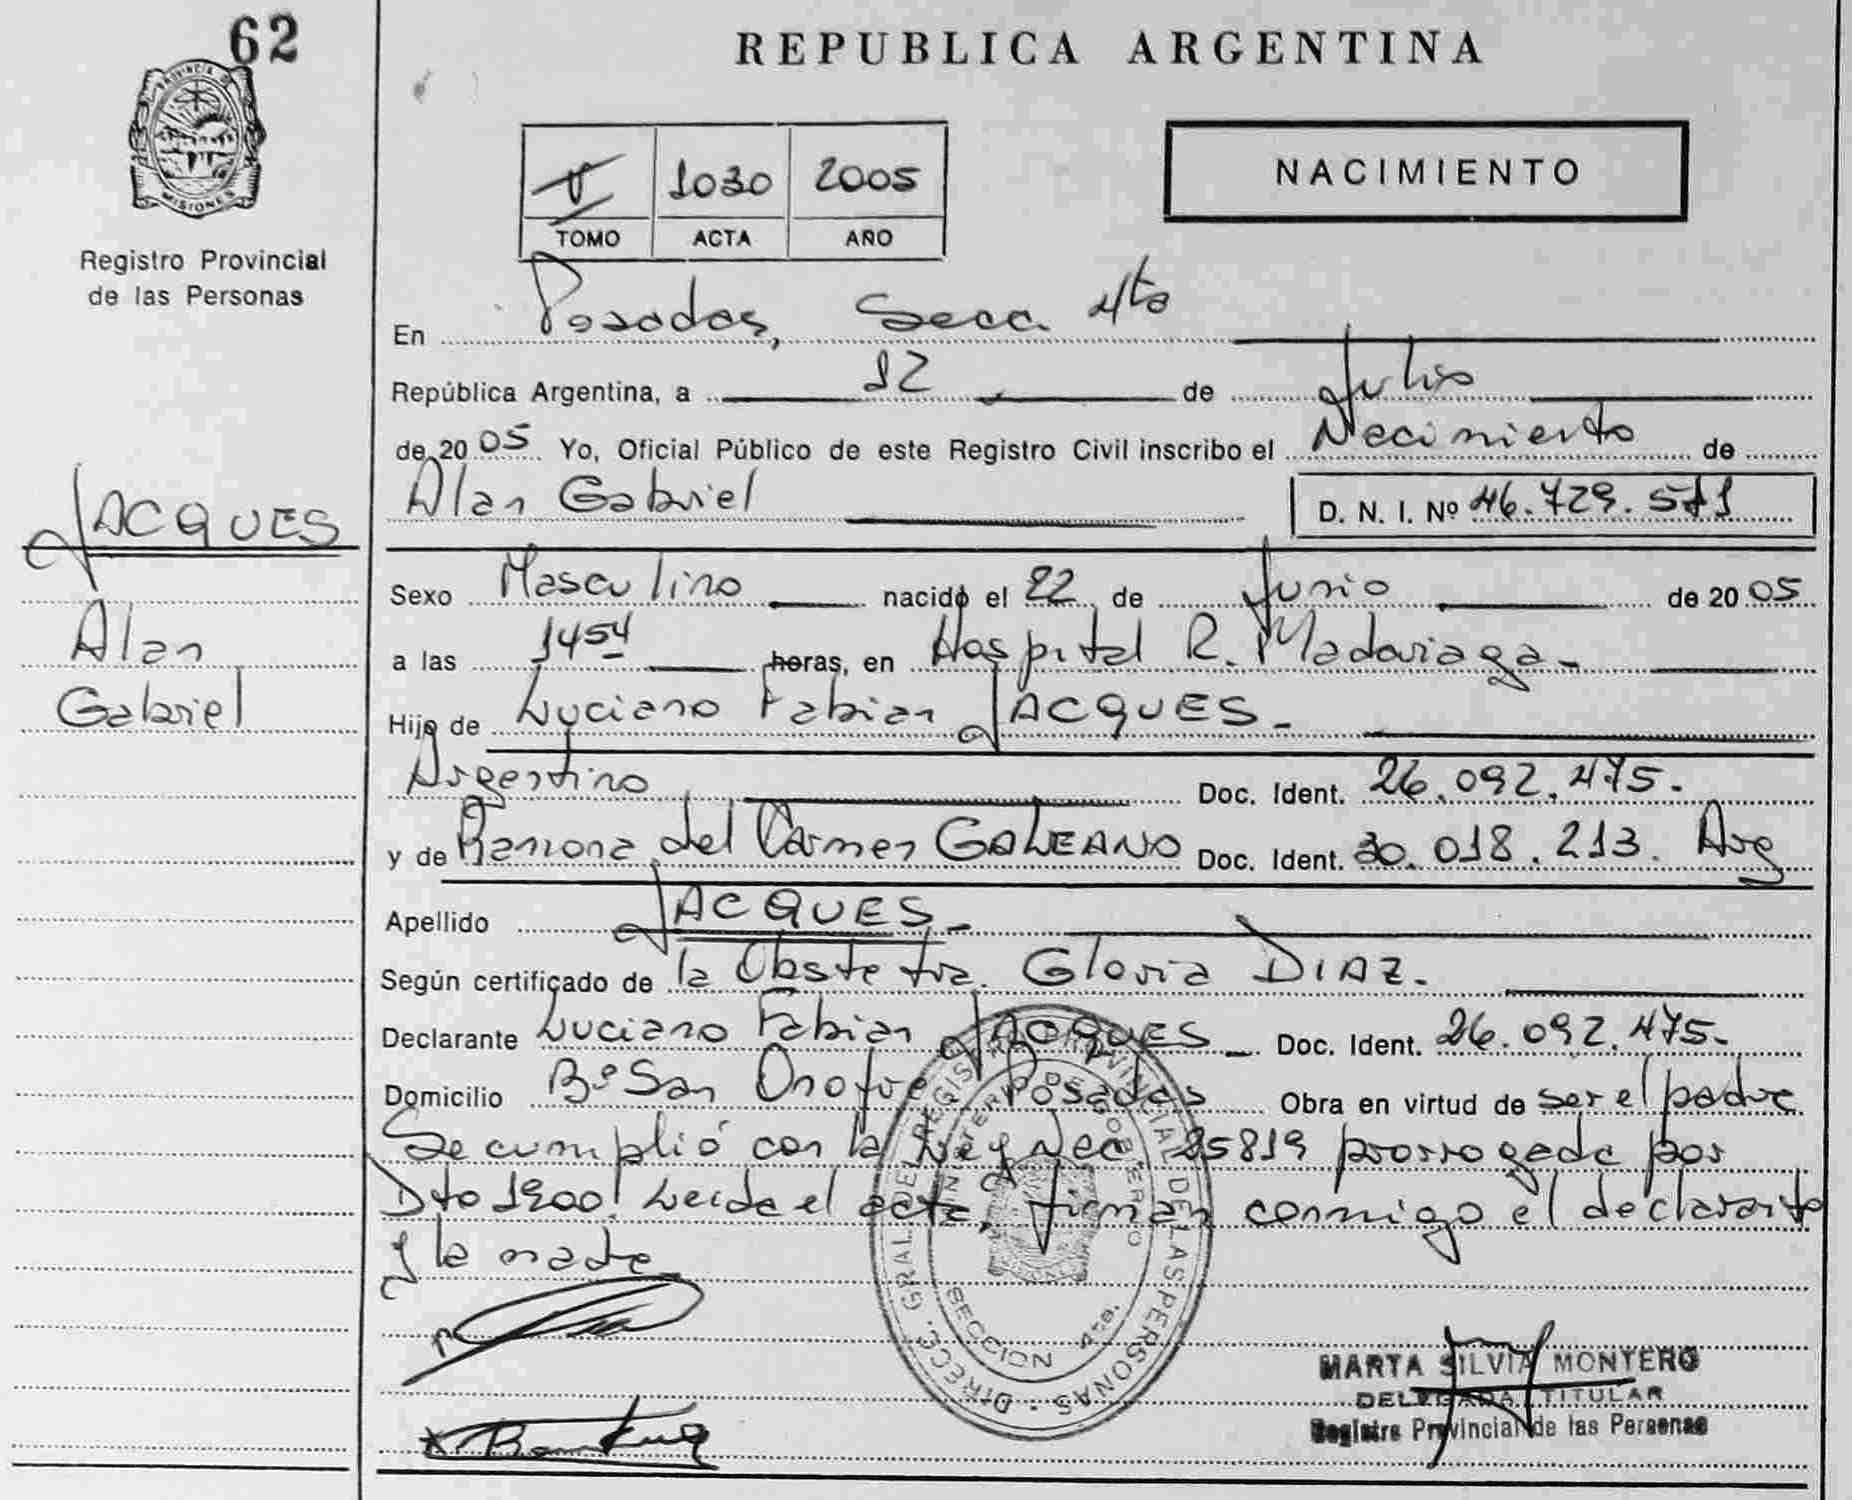 62
PROVINCIA DE
MISIONES
Registro Provincial
de las Personas
JACQUES
Alan
Gabriel
REPUBLICA ARGENTINA
V 1030 2005
TOMO ACTA AÑO
NACIMIENTO
En Posadas, Secc. 4ta
República Argentina, a 12 de Julio
de 2005 Yo, Oficial Público de este Registro Civil inscribo el Nacimiento de
Alan Gabriel D. N. I. Nº 46.729.571
Sexo Masculino nacido el 22 de Junio de 2005
a las 1454 horas, en Hospital R. Madariaga
Hijo de Luciano Fabian JACQUES.
Argentino Doc. Ident. 26.092.475.
y de Ramona del Carmen GALEANO Doc. Ident. 30.018.213. Arg
Apellido JACQUES
Según certificado de la Obstetra. Gloria DIAZ.
Declarante Luciano Fabian JACQUES Doc. Ident. 26.092.475.
Domicilio Bº San Onofre Posadas Obra en virtud de ser el padre
Se cumplió con la Ley Nac. 25819 prorrogada por
Dto 1200. Leida el acta, firman conmigo el declarante
y la madre
DIRECC. GRAL. DEL REGISTRO PROVINCIAL DE LAS PERSONAS
MINISTERIO DE GOBIERNO
SECCION 4ta.
MARTA SILVIA MONTERO
DELEGADA TITULAR
Registro Provincial de las Personas